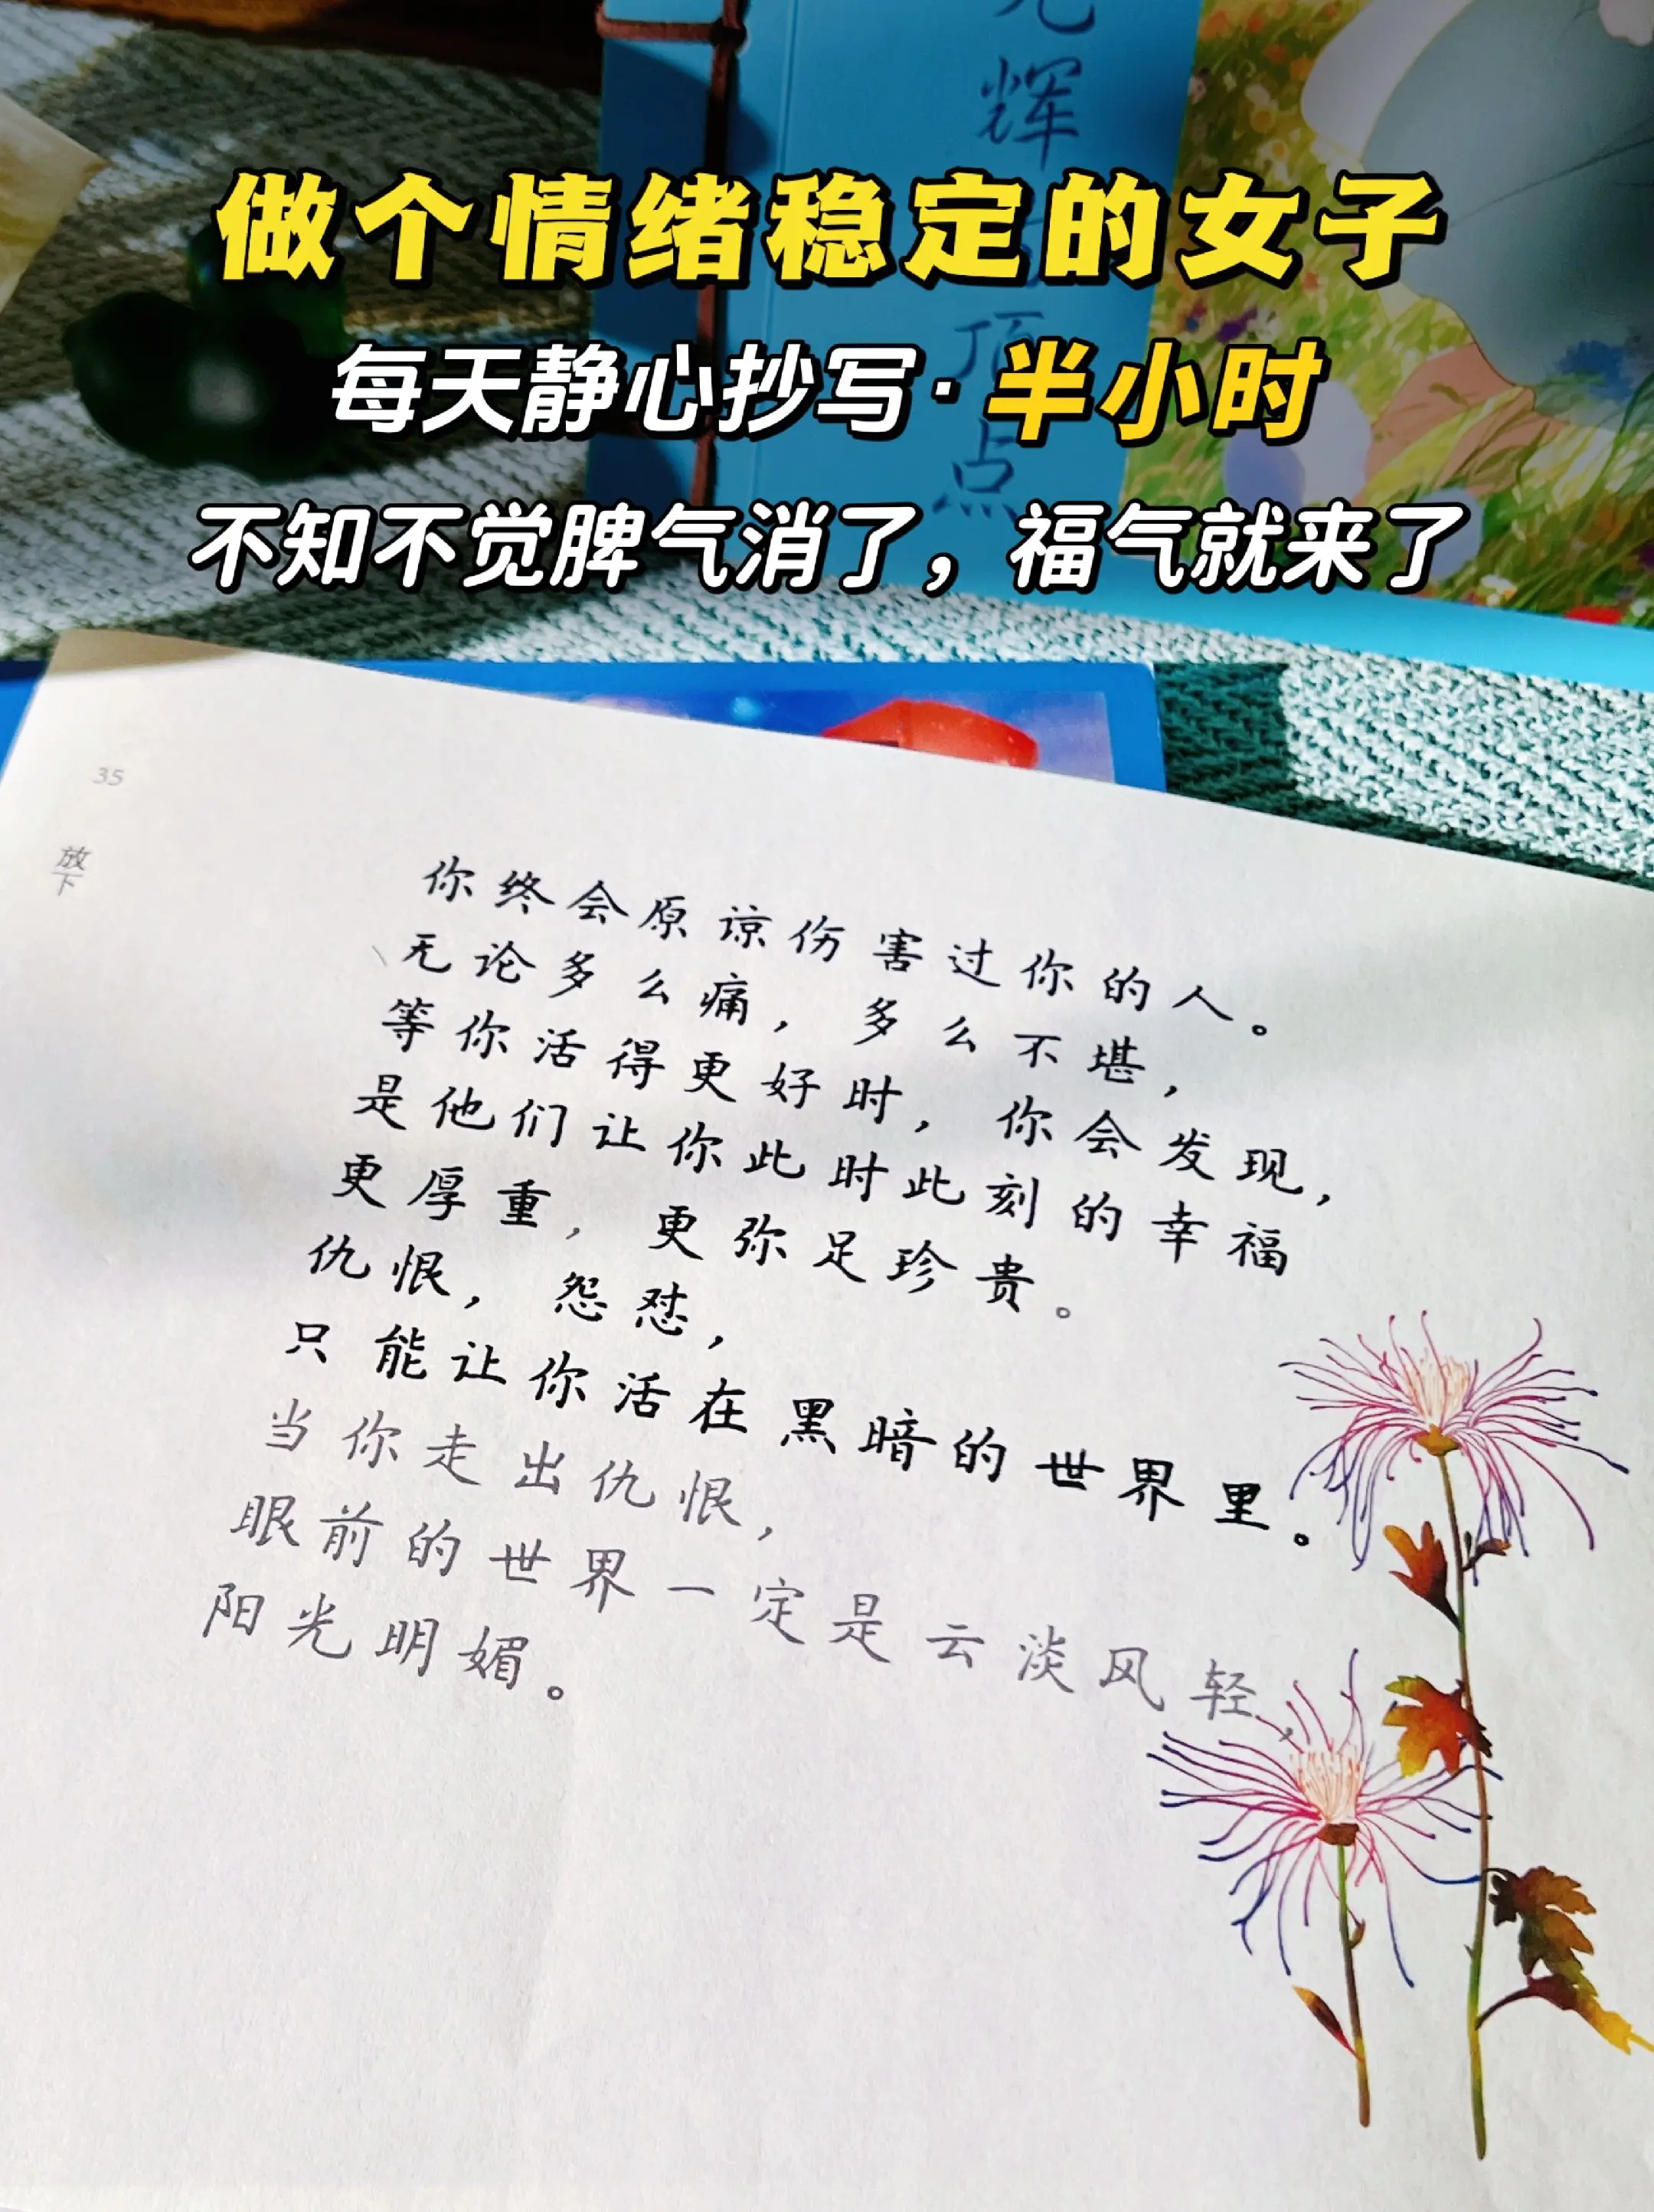 光辉
顶点
做个情绪稳定的女子
每天静心抄写·半小时
不知不觉脾气消了，福气就来了
35
放下
你终会原谅伤害过你的人。
无论多么痛，多么不堪，
等你活得更好时，你会发现，
是他们让你此时此刻的幸福
更厚重，更弥足珍贵。
仇恨，怨怼，
只能让你活在黑暗的世界里。
当你走出仇恨，
眼前的世界一定是云淡风轻，
阳光明媚。